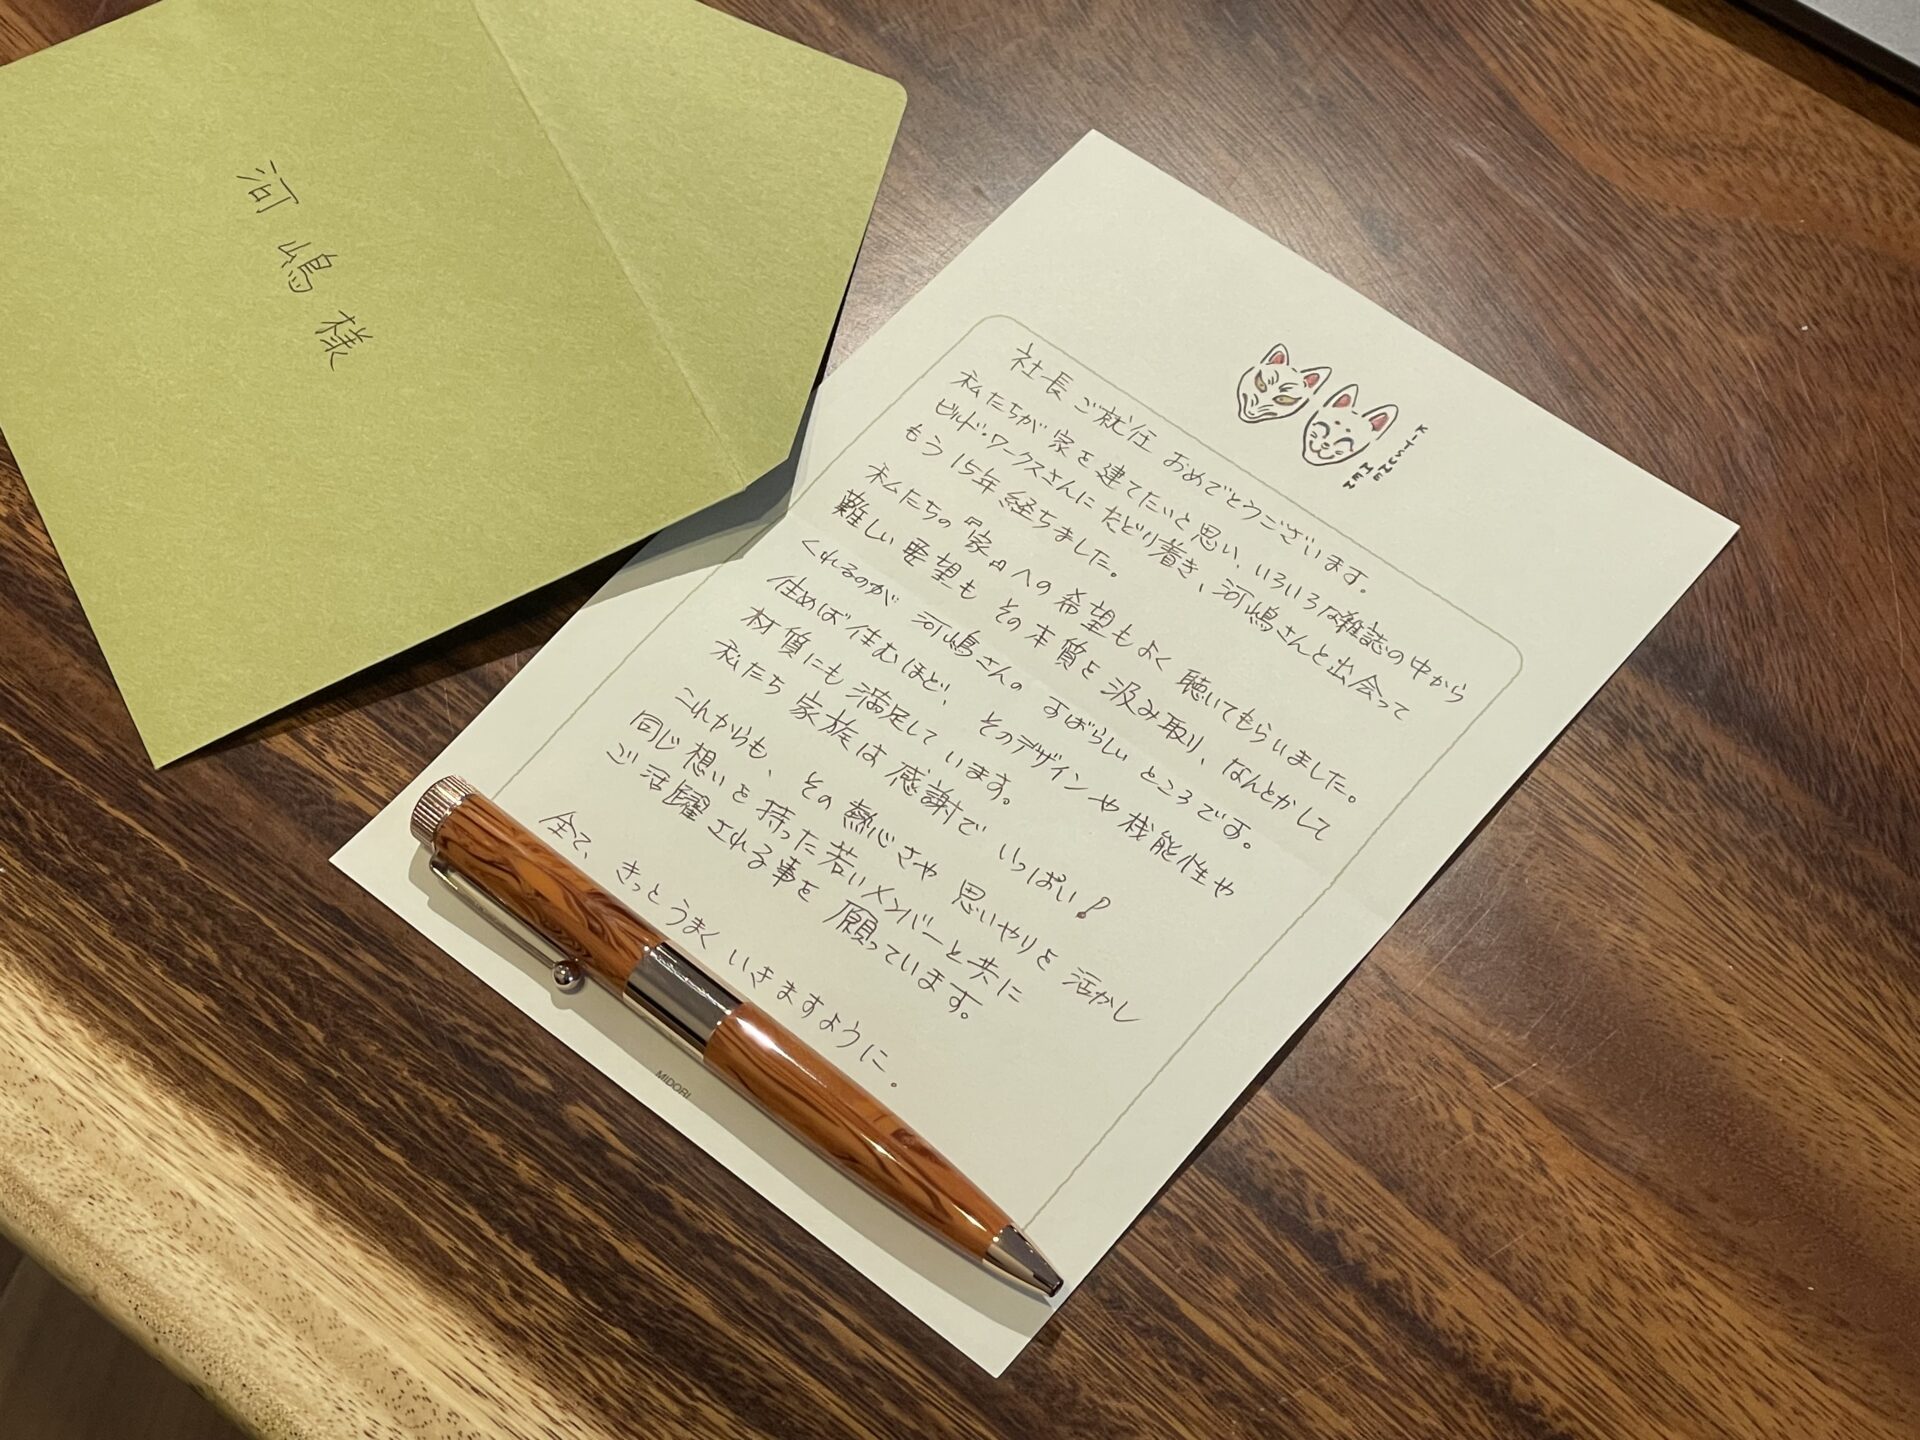 河嶋様
KITSUNE
MEN
社長 ご就任 おめでとうございます。
私たちが家を建てたいと思い、いろいろな雑誌の中から
ビルド・ワークスさんにたどり着き、河嶋さんと出会って
もう15年経ちました。
私たちの『家』への希望もよく聴いてもらいました。
難しい要望も その本質を汲み取り、なんとかして
くれるのが 河嶋さんの すばらしい ところです。
住めば住むほど、そのデザインや機能性や
材質にも満足しています。
私たち家族は感謝で いっぱい!
これからも、その熱心さや 思いやりを活かし
同じ想いを持った若いメンバーと共に
ご活躍される事を願っています。
全て、きっとうまく いきますように。
MIDORI